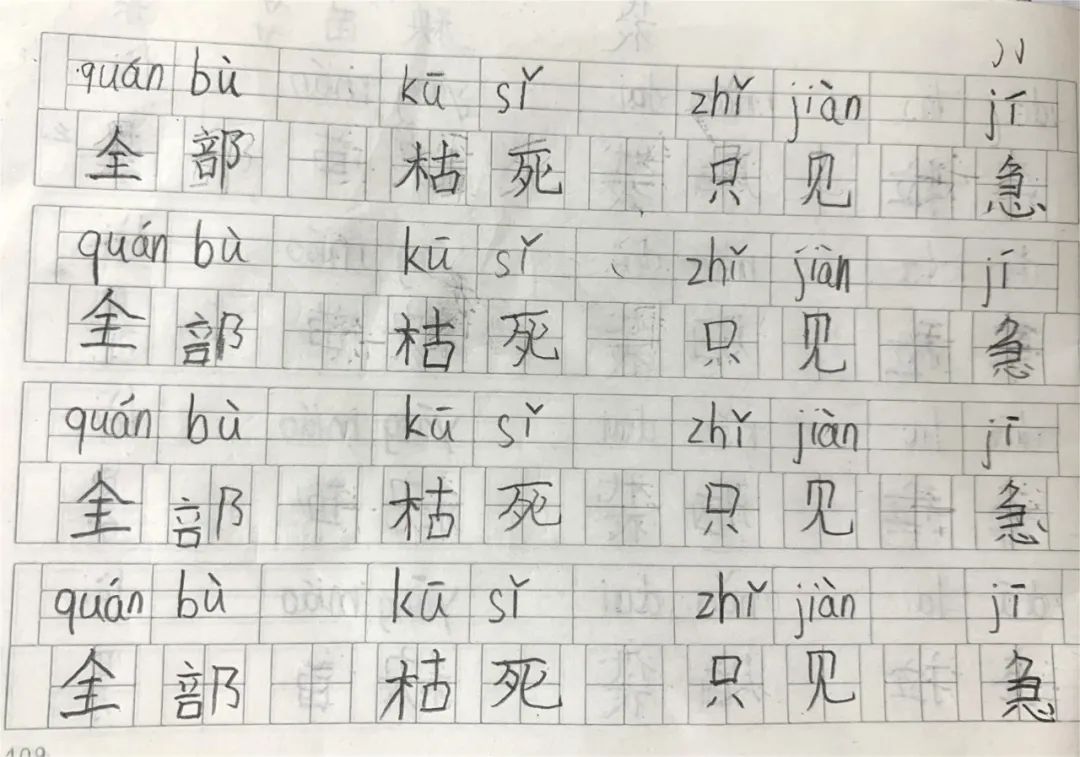 quán bù kū sǐ zhǐ jiàn jī
全部 枯死 只见 急
quán bù kū sǐ zhǐ jiàn jī
全部 枯死 只见 急
quán bù kū sǐ zhǐ jiàn jī
全部 枯死 只见 急
quán bù kū sǐ zhǐ jiàn jī
全部 枯死 只见 急